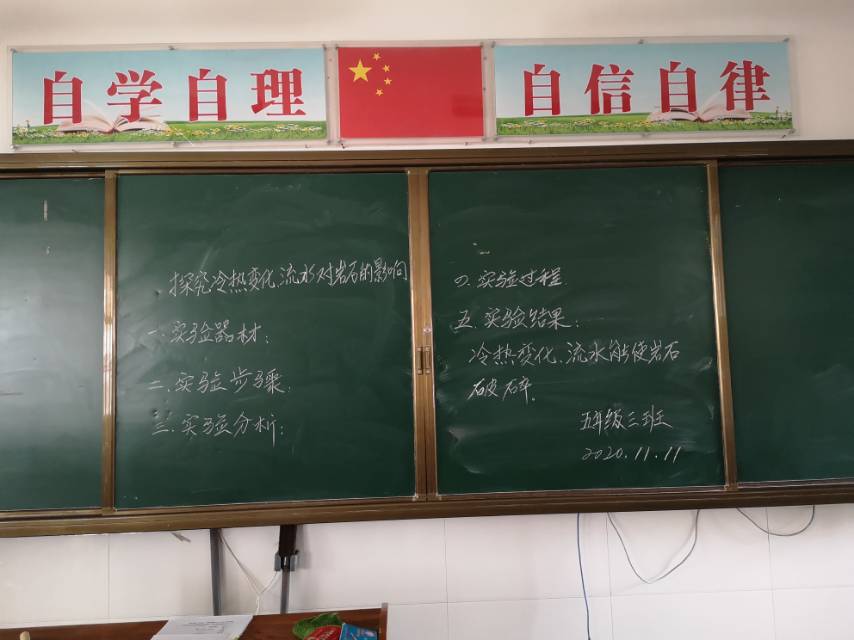 自学自理
自信自律
探究冷热变化、流水对岩石的影响
一.实验器材:
二.实验步骤.
三.实验分析:
四.实验过程.
五.实验结果:
冷热变化、流水能使岩石
破碎.
五年级三班
2020.11.11